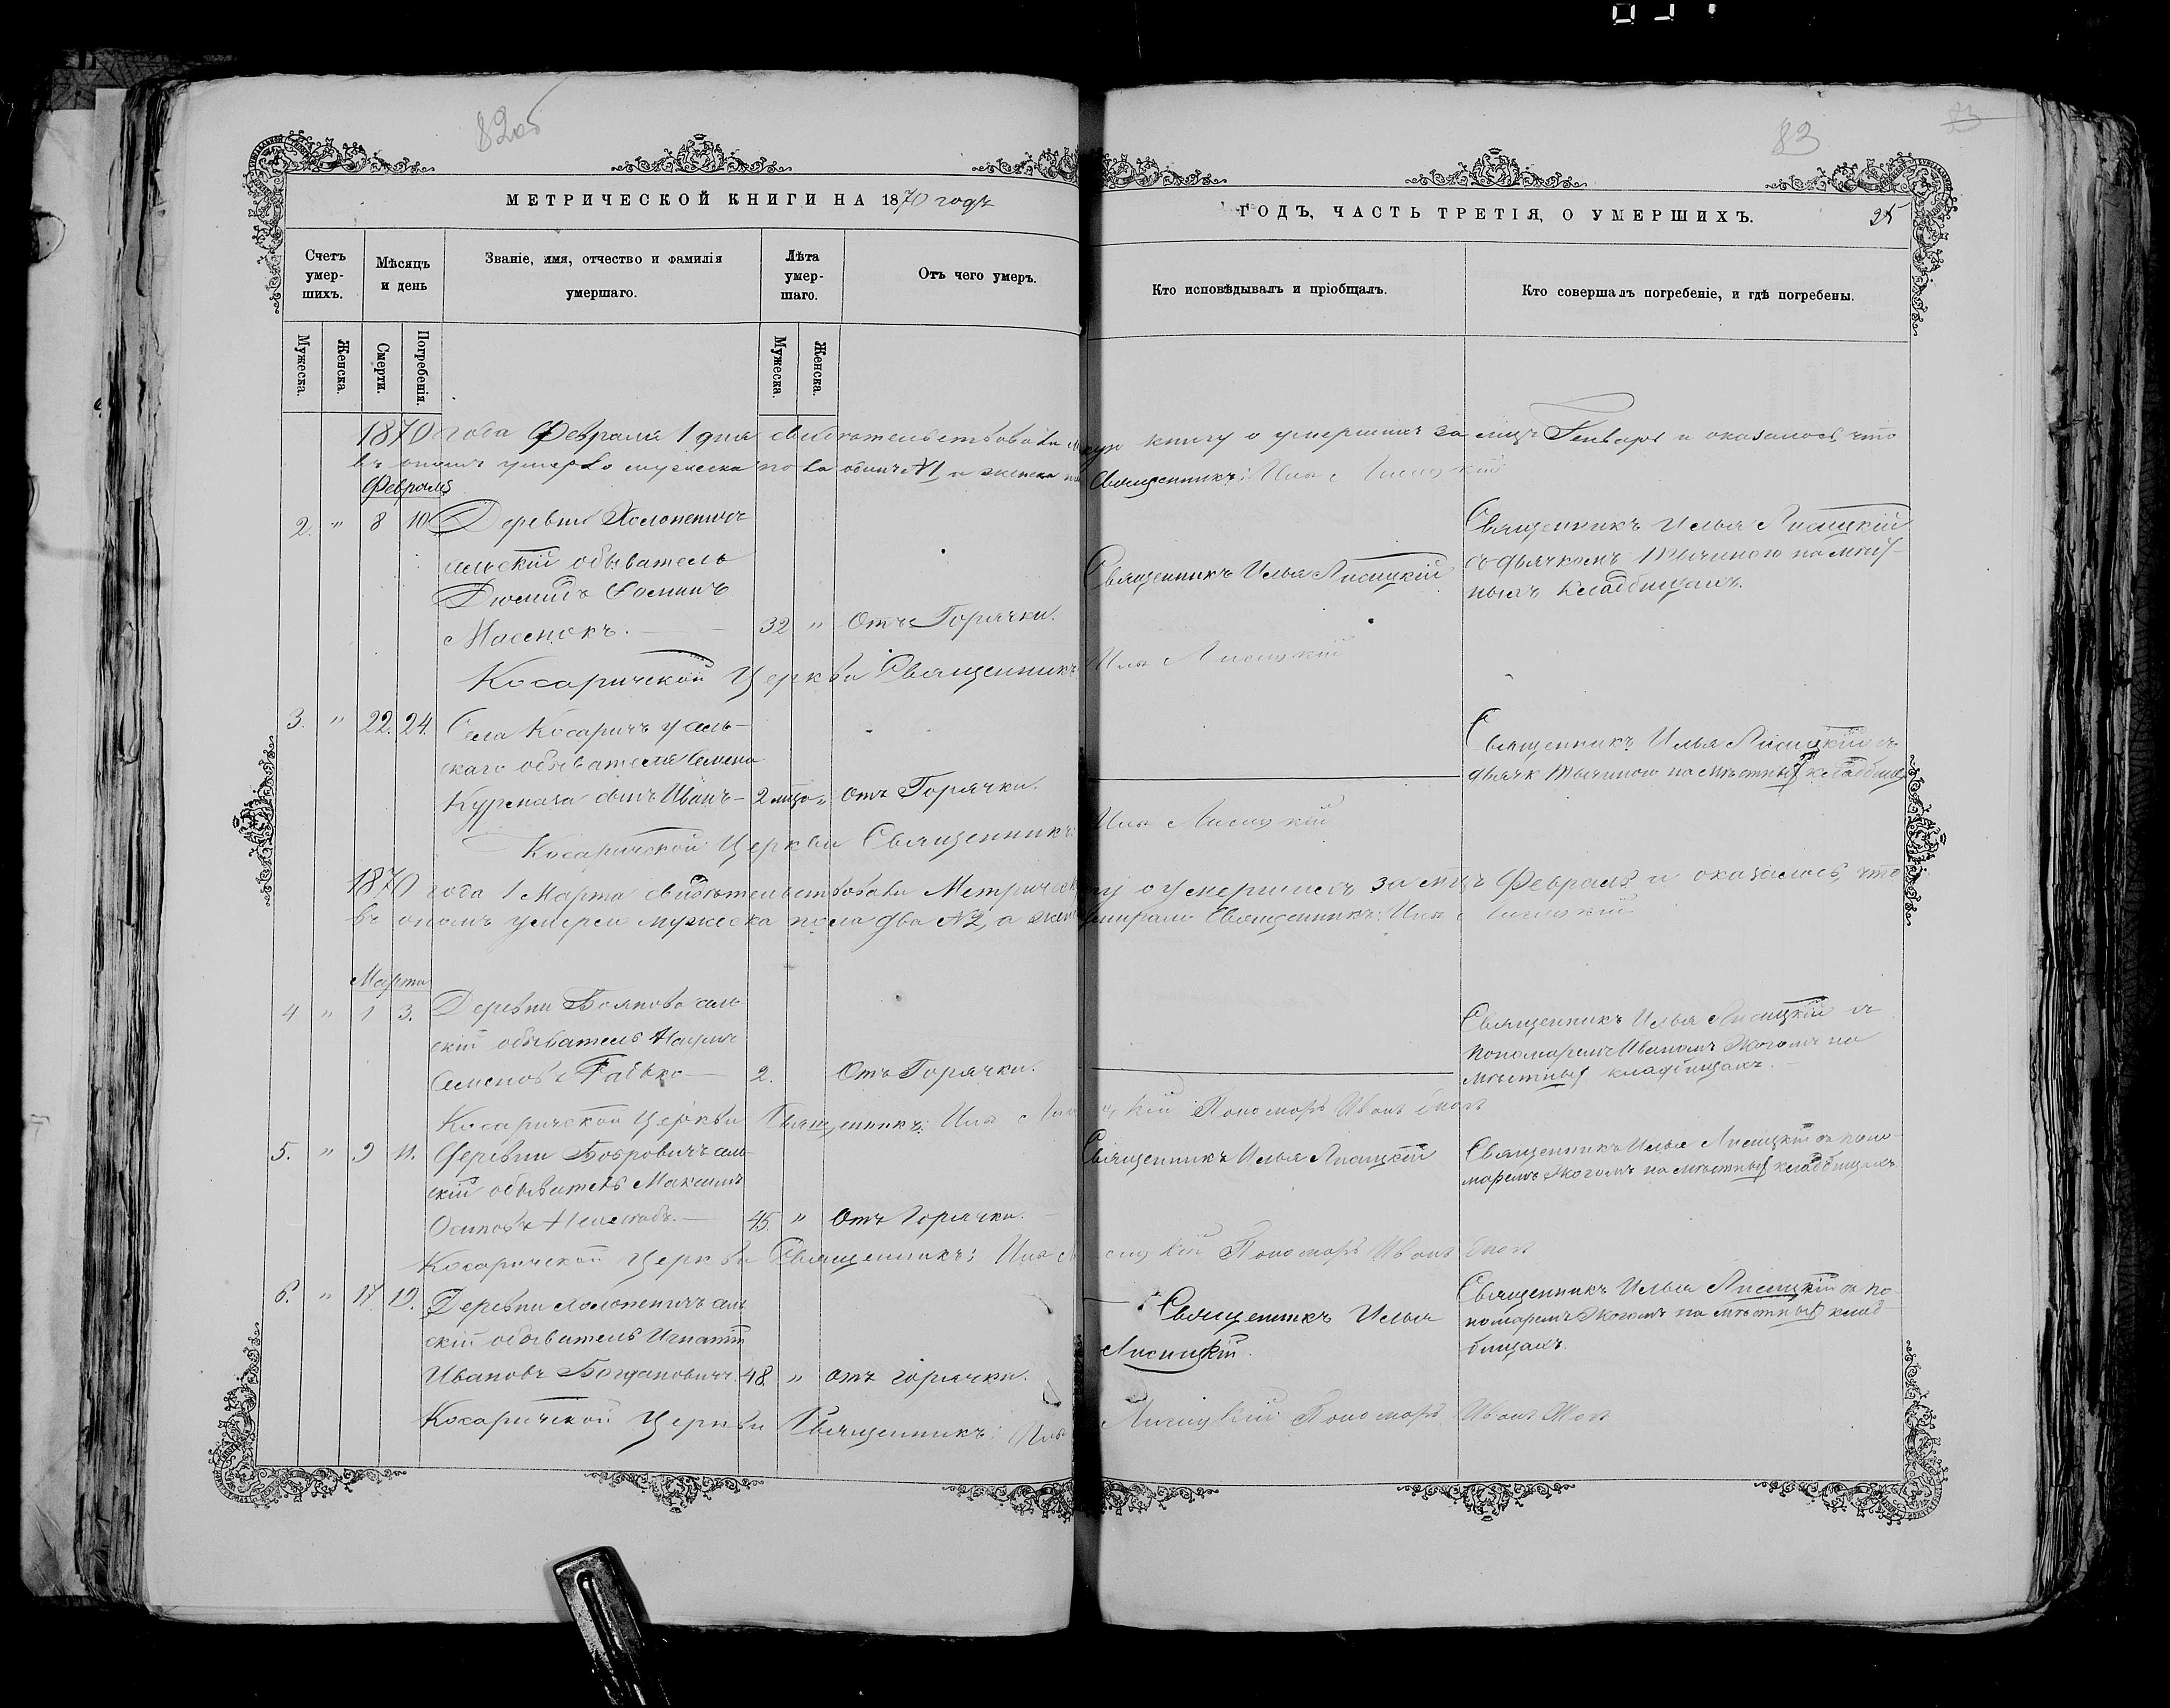 82об
МЕТРИЧЕСКОЙ КНИГИ НА 1870 годъ
Счетъ умер-шихъ.
Мѣсяцъ и день
Званіе, имя, отчество и фамилія умершаго.
Лѣта умер-шаго.
Отъ чего умеръ.
Мужеска.
Женска.
Смерти.
Погребенія.
Мужеска
Женска.
83
ГОДЪ, ЧАСТЬ ТРЕТІЯ, О УМЕРШИХЪ.
25
Кто исповѣдывалъ и пріобщалъ.
Кто совершалъ погребеніе, и гдѣ погребены.
1870 года Февраля 1 дня свидѣтельствовали книгу о умершихъ за мцъ Генварь и оказалось, что
въ ономъ умерло мужеска пола одинъ №1, и женска Священникъ: Илія Лисицкій
Февраля
2. " 8 10 Деревни Холопеничъ
сельскій обыватель
Диомидъ Фоминъ
Масенокъ. 32 " Отъ Горячки.
Священникъ Илья Лисицкій
Священникъ Илья Лисицкій
съ дьячкомъ Тычиною на мѣст-
ныхъ кладбищахъ.
Косаричской Церкви Священникъ Илія Лисицкій
3. " 22. 24. Села Косаричъ у сель-
скаго обывателя Семена
сынъ Иванъ 2 " отъ Горячки.
Священникъ Илья Лисицкій съ
дьяч. Тычиною на мѣстныхъ кладбищ.
Косаричской Церкви Священникъ: Илія Лисицкій
1870 года 1 Марта свидѣтельствовали Метрическую о умершихъ за мцъ Февраль и оказалось, что
въ ономъ умерли мужеска пола два №2, а умирало Священникъ: Илія Лисицкій
Марта
4 " 1 3. Деревни Бояново сель-
скій обыватель
Семеновъ Рабко 2. Отъ Горячки.
Священникъ Илья Лисицкій съ
пономаремъ Иваномъ Жогомъ на
мѣстныхъ кладбищахъ.
Косаричской Церкви Священникъ: Илія Лисицкій Пономарь Иванъ
5. " 9 11. Деревни Бобровичъ сель-
скій обыватель Максимъ
Осиповъ 45. " Отъ Горячки.
Священникъ Илья Лисицкій
Священникъ Илья Лисицкій съ поно-
маремъ Жогомъ на мѣстныхъ кладбищахъ
Косаричской Церкви Священникъ: Илія Лисицкій Пономарь Иванъ
6. " 17. 19. Деревни Холопеничъ сель
скій обыватель Игнатій
Ивановъ Богдановичъ. 48. " отъ горячки.
Священникъ Илья
Лисицкій.
Священникъ Илья Лисицкій съ по
номаремъ Жогомъ на мѣстныхъ клад
бищахъ
Косаричской Церкви Священникъ: Илія Лисицкій Пономарь Иванъ Жогъ